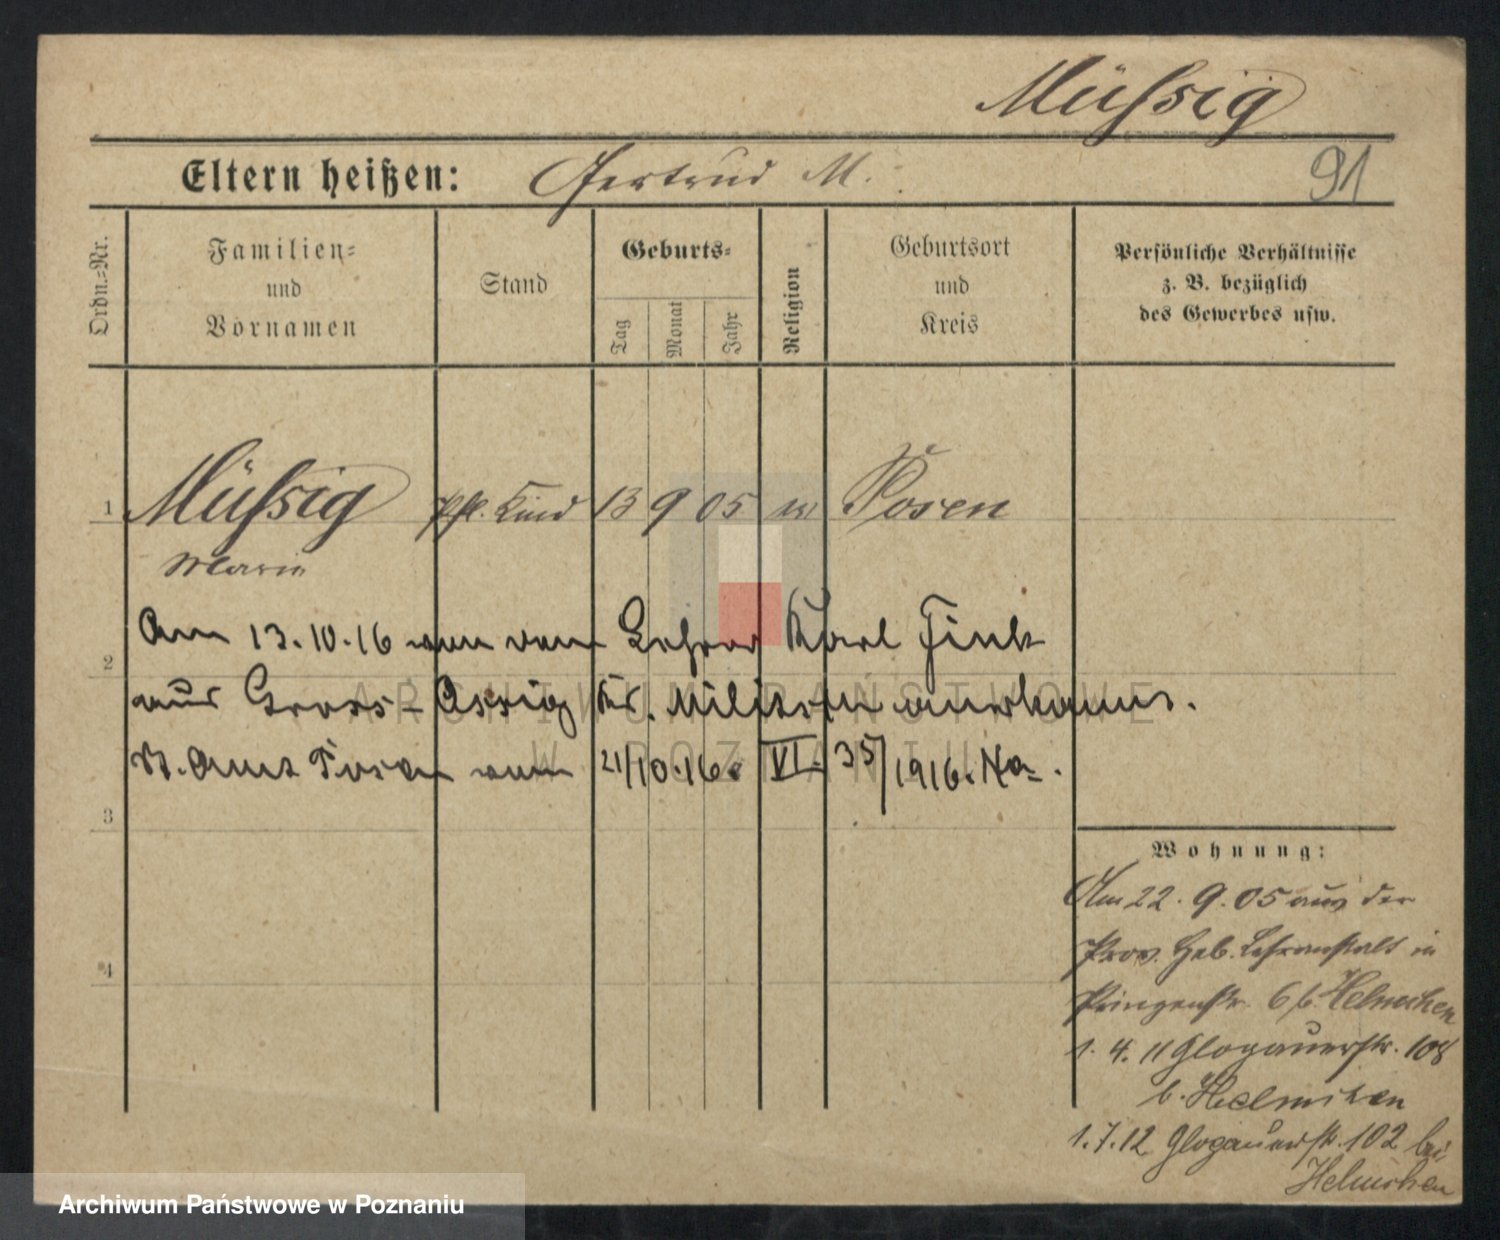 Müßig
91
Eltern heißen: Gertrud M.
Ordn.-Nr.
Familien- und Vornamen
Stand
Geburts-
Tag
Monat
Jahr
Religion
Geburtsort und Kreis
Persönliche Verhältnisse z. B. bezüglich des Gewerbes usw.
1 Müßig pfl. Kind 13 9 05 Posen
Marie
Am 13.10.16 von vom Lehrer Karl Fink
2
aus Gross-Ossig Kr. Militsch anerkannt.
Amt Posen vom 21/10.16. VI. 35/1916. Na.
3
Wohnung:
Am 22. 9. 05 aus der
Prov. Heb. Lehranstalt in
4
Prinzenstr. 6 b. Helmchen
1. 4. 11 Glogauerstr. 108
b. Helmchen
1.7.12 Glogauerstr. 102 bei
Helmchen
ARCHIWUM PAŃSTWOWE
W POZNANIU
Archiwum Państwowe w Poznaniu